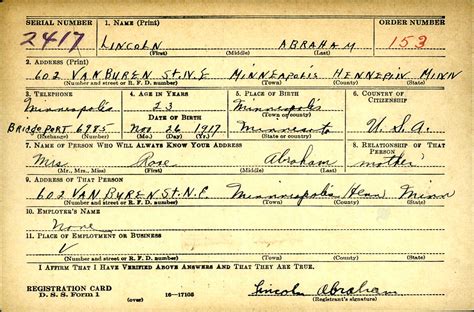 SERIAL NUMBER 1. NAME (Print) ORDER NUMBER
2417 LINCOLN ABRAHAM 153
(First) (Middle) (Last)
2. ADDRESS (Print)
602 VAN BUREN St. N.E MINNEAPOLIS HENNEPIN MINN
(Number and street or R. F. D. number) (Town) (County) (State)
3. TELEPHONE 4. AGE IN YEARS 5. PLACE OF BIRTH 6. COUNTRY OF CITIZENSHIP
Minneapolis 23 Minneapolis
DATE OF BIRTH (Town or county)
BRidgePORT 6985 Nov. 26 1917 Minnesota U.S.A.
(Mo.) (Day) (Yr.) (State or country)
7. NAME OF PERSON WHO WILL ALWAYS KNOW YOUR ADDRESS 8. RELATIONSHIP OF THAT PERSON
Mrs. Rose Abraham mother
(Mr., Mrs., Miss) (First) (Middle) (Last)
9. ADDRESS OF THAT PERSON
602 VAN BUREN St. N.E. Minneapolis Henn Minn
(Number and street or R. F. D. number) (Town) (County) (State)
10. EMPLOYER'S NAME
None
11. PLACE OF EMPLOYMENT OR BUSINESS
(Number and street or R. F. D. number) (Town) (County) (State)
I AFFIRM THAT I HAVE VERIFIED ABOVE ANSWERS AND THAT THEY ARE TRUE.
REGISTRATION CARD
D. S. S. Form 1 (over) 16—17105 Lincoln Abraham
(Registrant's signature)